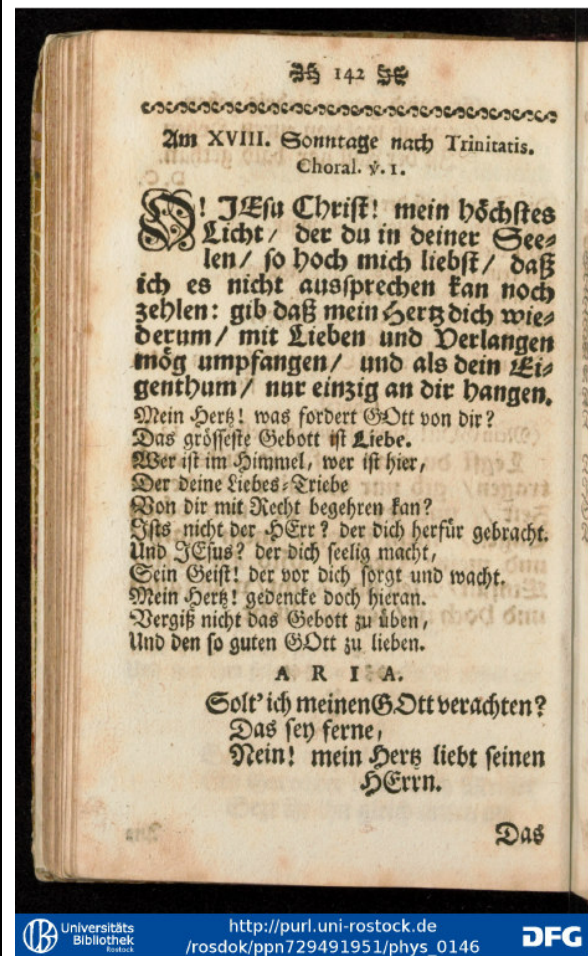 142
Am XVIII. Sonntage nach Trinitatis.
Choral. v. 1.
O! JEsu Christ! mein höchstes
Licht/ der du in deiner See-
len/ so hoch mich liebst/ daß
ich es nicht aussprechen kan noch
zehlen: gib daß mein Hertz dich wie-
derum/ mit Lieben und Verlangen
mög umpfangen/ und als dein Ei-
genthum/ nur einzig an dir hangen.
Mein Hertz! was fordert GOtt von dir?
Das grösseste Gebott ist Liebe.
Wer ist im Himmel, wer ist hier,
Der deine Liebes-Triebe
Von dir mit Recht begehren kan?
Ists nicht der HErr? der dich herfür gebracht.
Und JEsus? der dich seelig macht,
Sein Geist! der vor dich sorgt und wacht.
Mein Hertz! gedencke doch hieran.
Vergiß nicht das Gebott zu üben,
Und den so guten GOtt zu lieben.
ARIA.
Solt' ich meinen GOtt verachten?
Das sey ferne,
Nein! mein Hertz liebt seinen
HErrn.
Das
Universitäts
Bibliothek
Rostock
http://purl.uni-rostock.de
/rosdok/ppn729491951/phys_0146
DFG